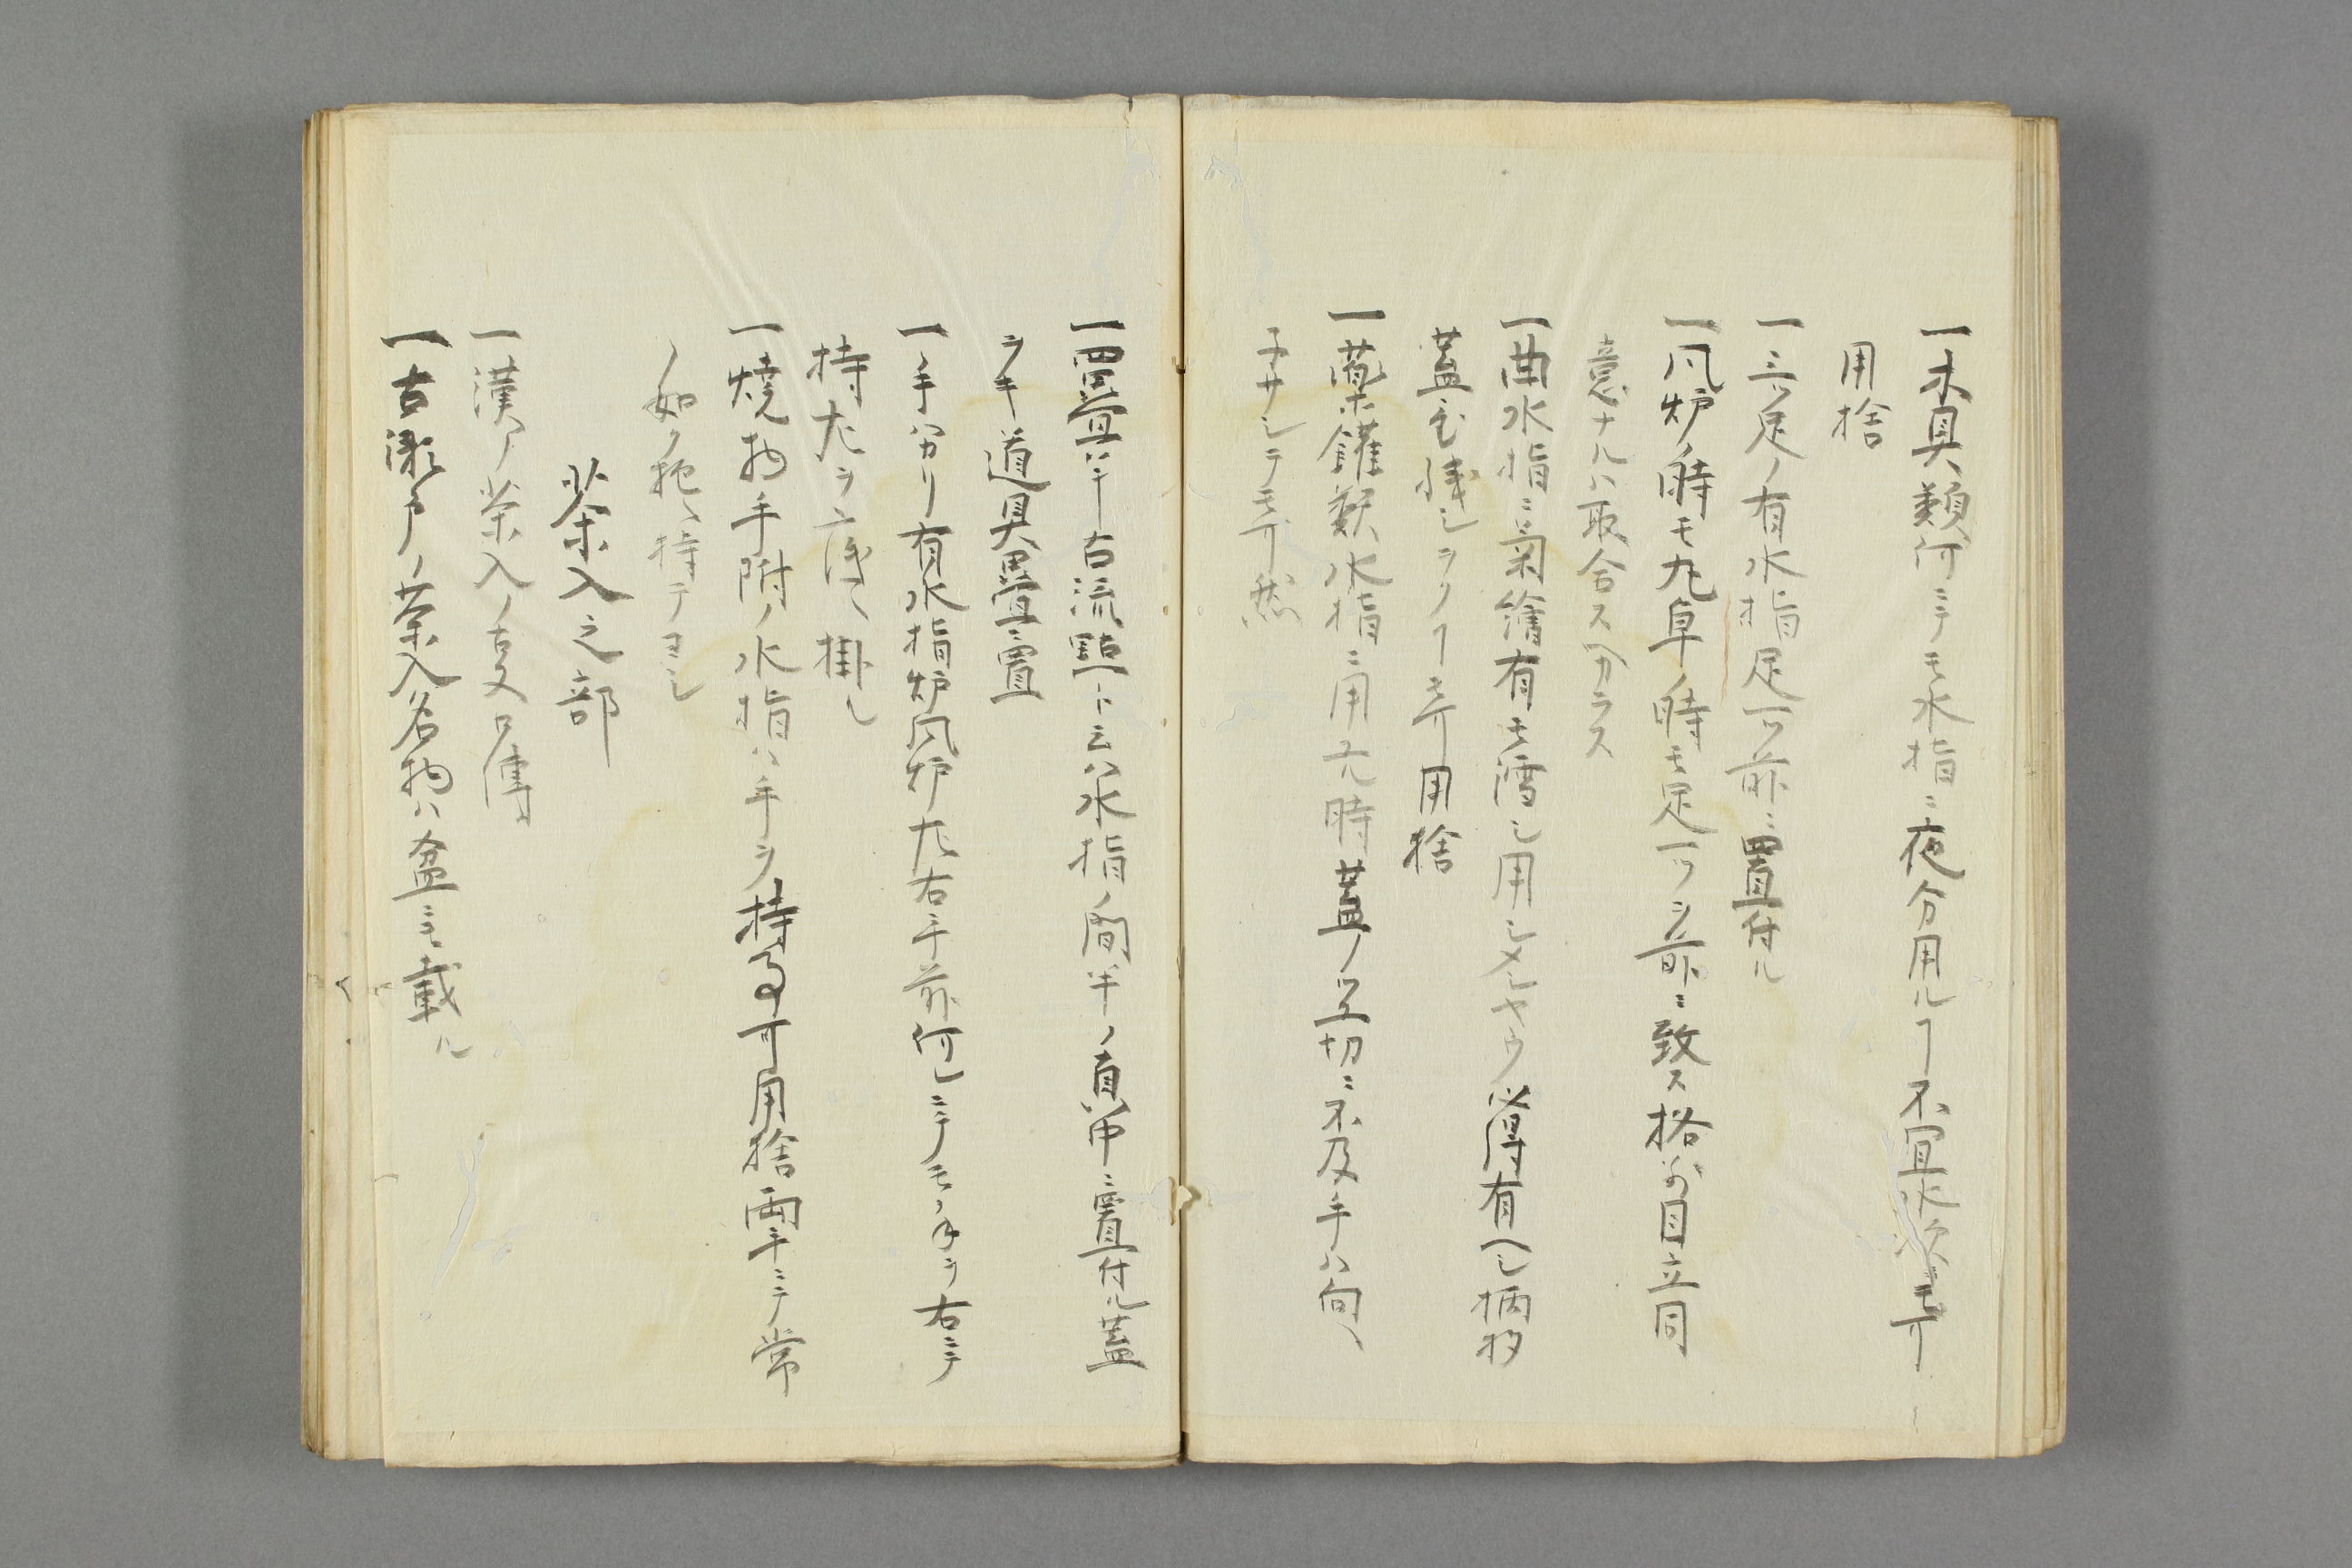 一木具類何ニテモ水指ニ夜分用ルヿ不宜水次モ可
用捨
一三ツ足ノ有水指足一ツ前ニ置付ル
一風炉ノ時モ丸卓ノ時モ足一ツヲ前ニ致ス格別目立同
意ナルハ取合スヘカラス
一曲水指ニ菊繪有モ陰シ用
得有ヘシ柄杓
蓋
可用捨
一薬鑵類水指ニ用 時蓋ノツマミ切ニ不及手ハ向ヘ
モ可然
一畳ハ于古流點ト云ハ水指ノ間半ノ真中ニ置付ル蓋
ヲキ道具畳ニ置
一手分リ有水指炉風炉左右手前何レニテモノ手ヲ右ニテ
持左ヲ底ヘ掛ル
一焼物手附ノ水指ハ手ヲ持事可用捨両手ニテ常
ノ如ク抱ヘ持テヨシ
茶入之部
一漢ノ茶入ノ古又口傳
一古瀬戸ノ茶入名物ハ盆ニモ載ル